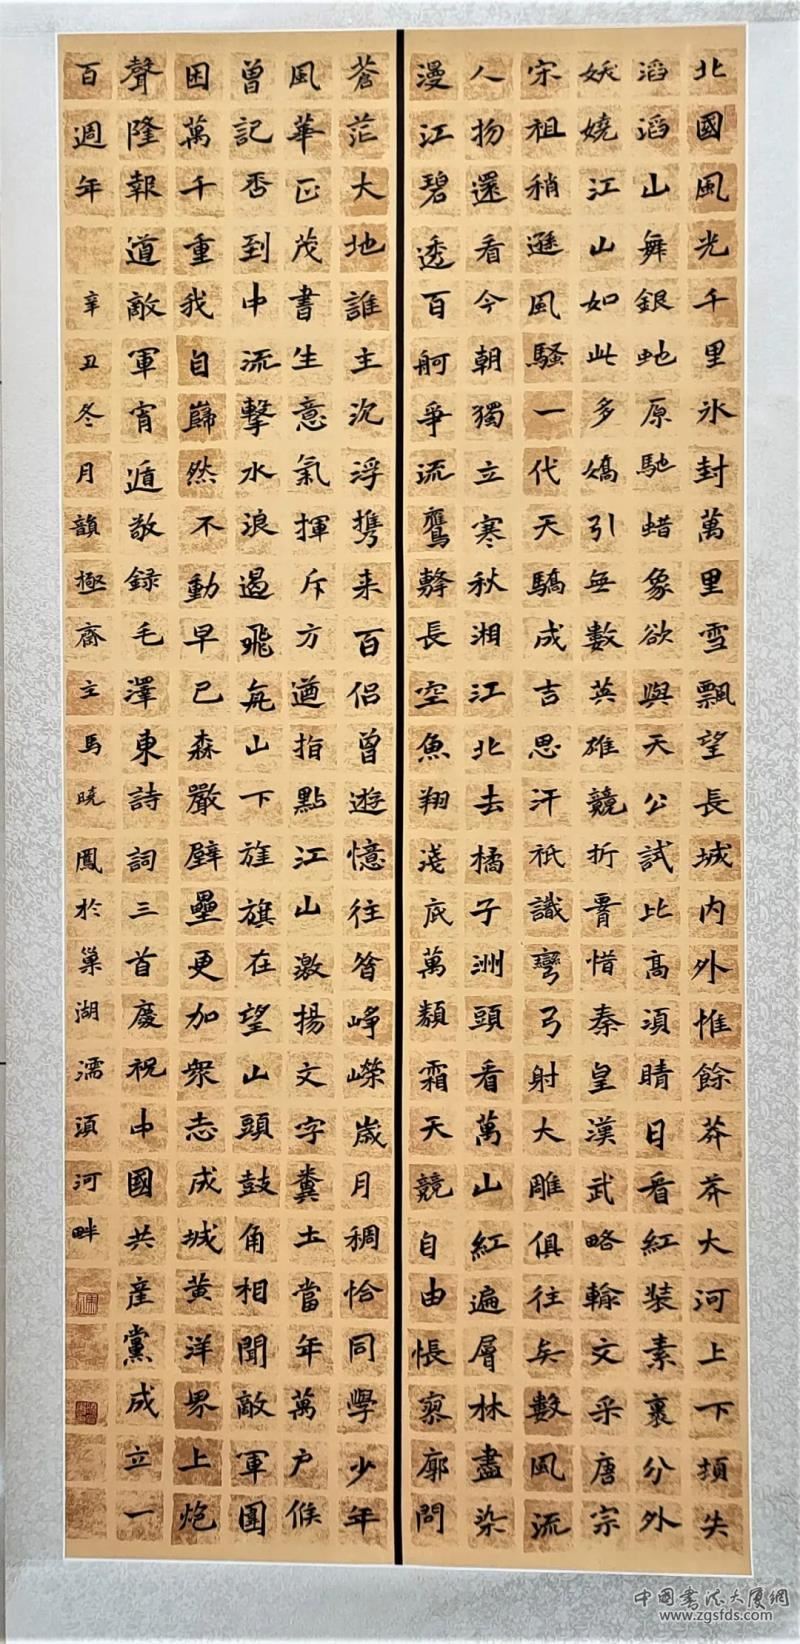 北國風光千里氷封萬里雪飄望長城内外惟餘莽莽大河上下頓失
滔滔山舞銀虵原馳蜡象欲與天公試比高須晴日看紅装素裹分外
妖嬈江山如此多嬌引無數英雄競折署惜秦皇漢武略輸文采唐宗
宋祖稍遜風騷一代天驕成吉思汗祇識彎弓射大雕俱往矣數風流
人物還看今朝獨立寒秋湘江北去橘子洲頭看萬山紅遍層林盡染
漫江碧透百舸爭流鷹擊長空魚翔淺底萬類霜天競自由悵寥廓問
蒼茫大地誰主沉浮攜来百侶曾遊憶往昝崢嶸歲月稠恰同學少年
風華正茂書生意氣揮斥方遒指點江山激揚文字糞土當年萬户侯
曾記否到中流擊水浪遏飛舟山下旌旗在望山頭鼓角相聞敵軍圍
困萬千重我自巋然不動早已森嚴壁壘更加衆志成城黄洋界上炮
聲隆報道敵軍宵遁敬録毛澤東詩詞三首慶祝中國共産黨成立一
百週年 辛丑冬月韻極齋主馬曉鳳於巢湖濡須河畔
中國書法大廈網
www.zgsfds.com